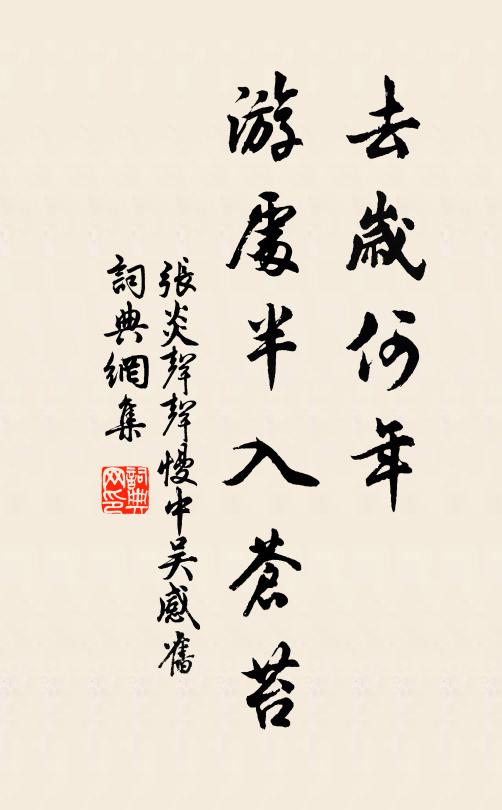 去歲何年
游處半入蒼苔
張炎聲聲慢中吳感舊
詞典網集
詞典網印